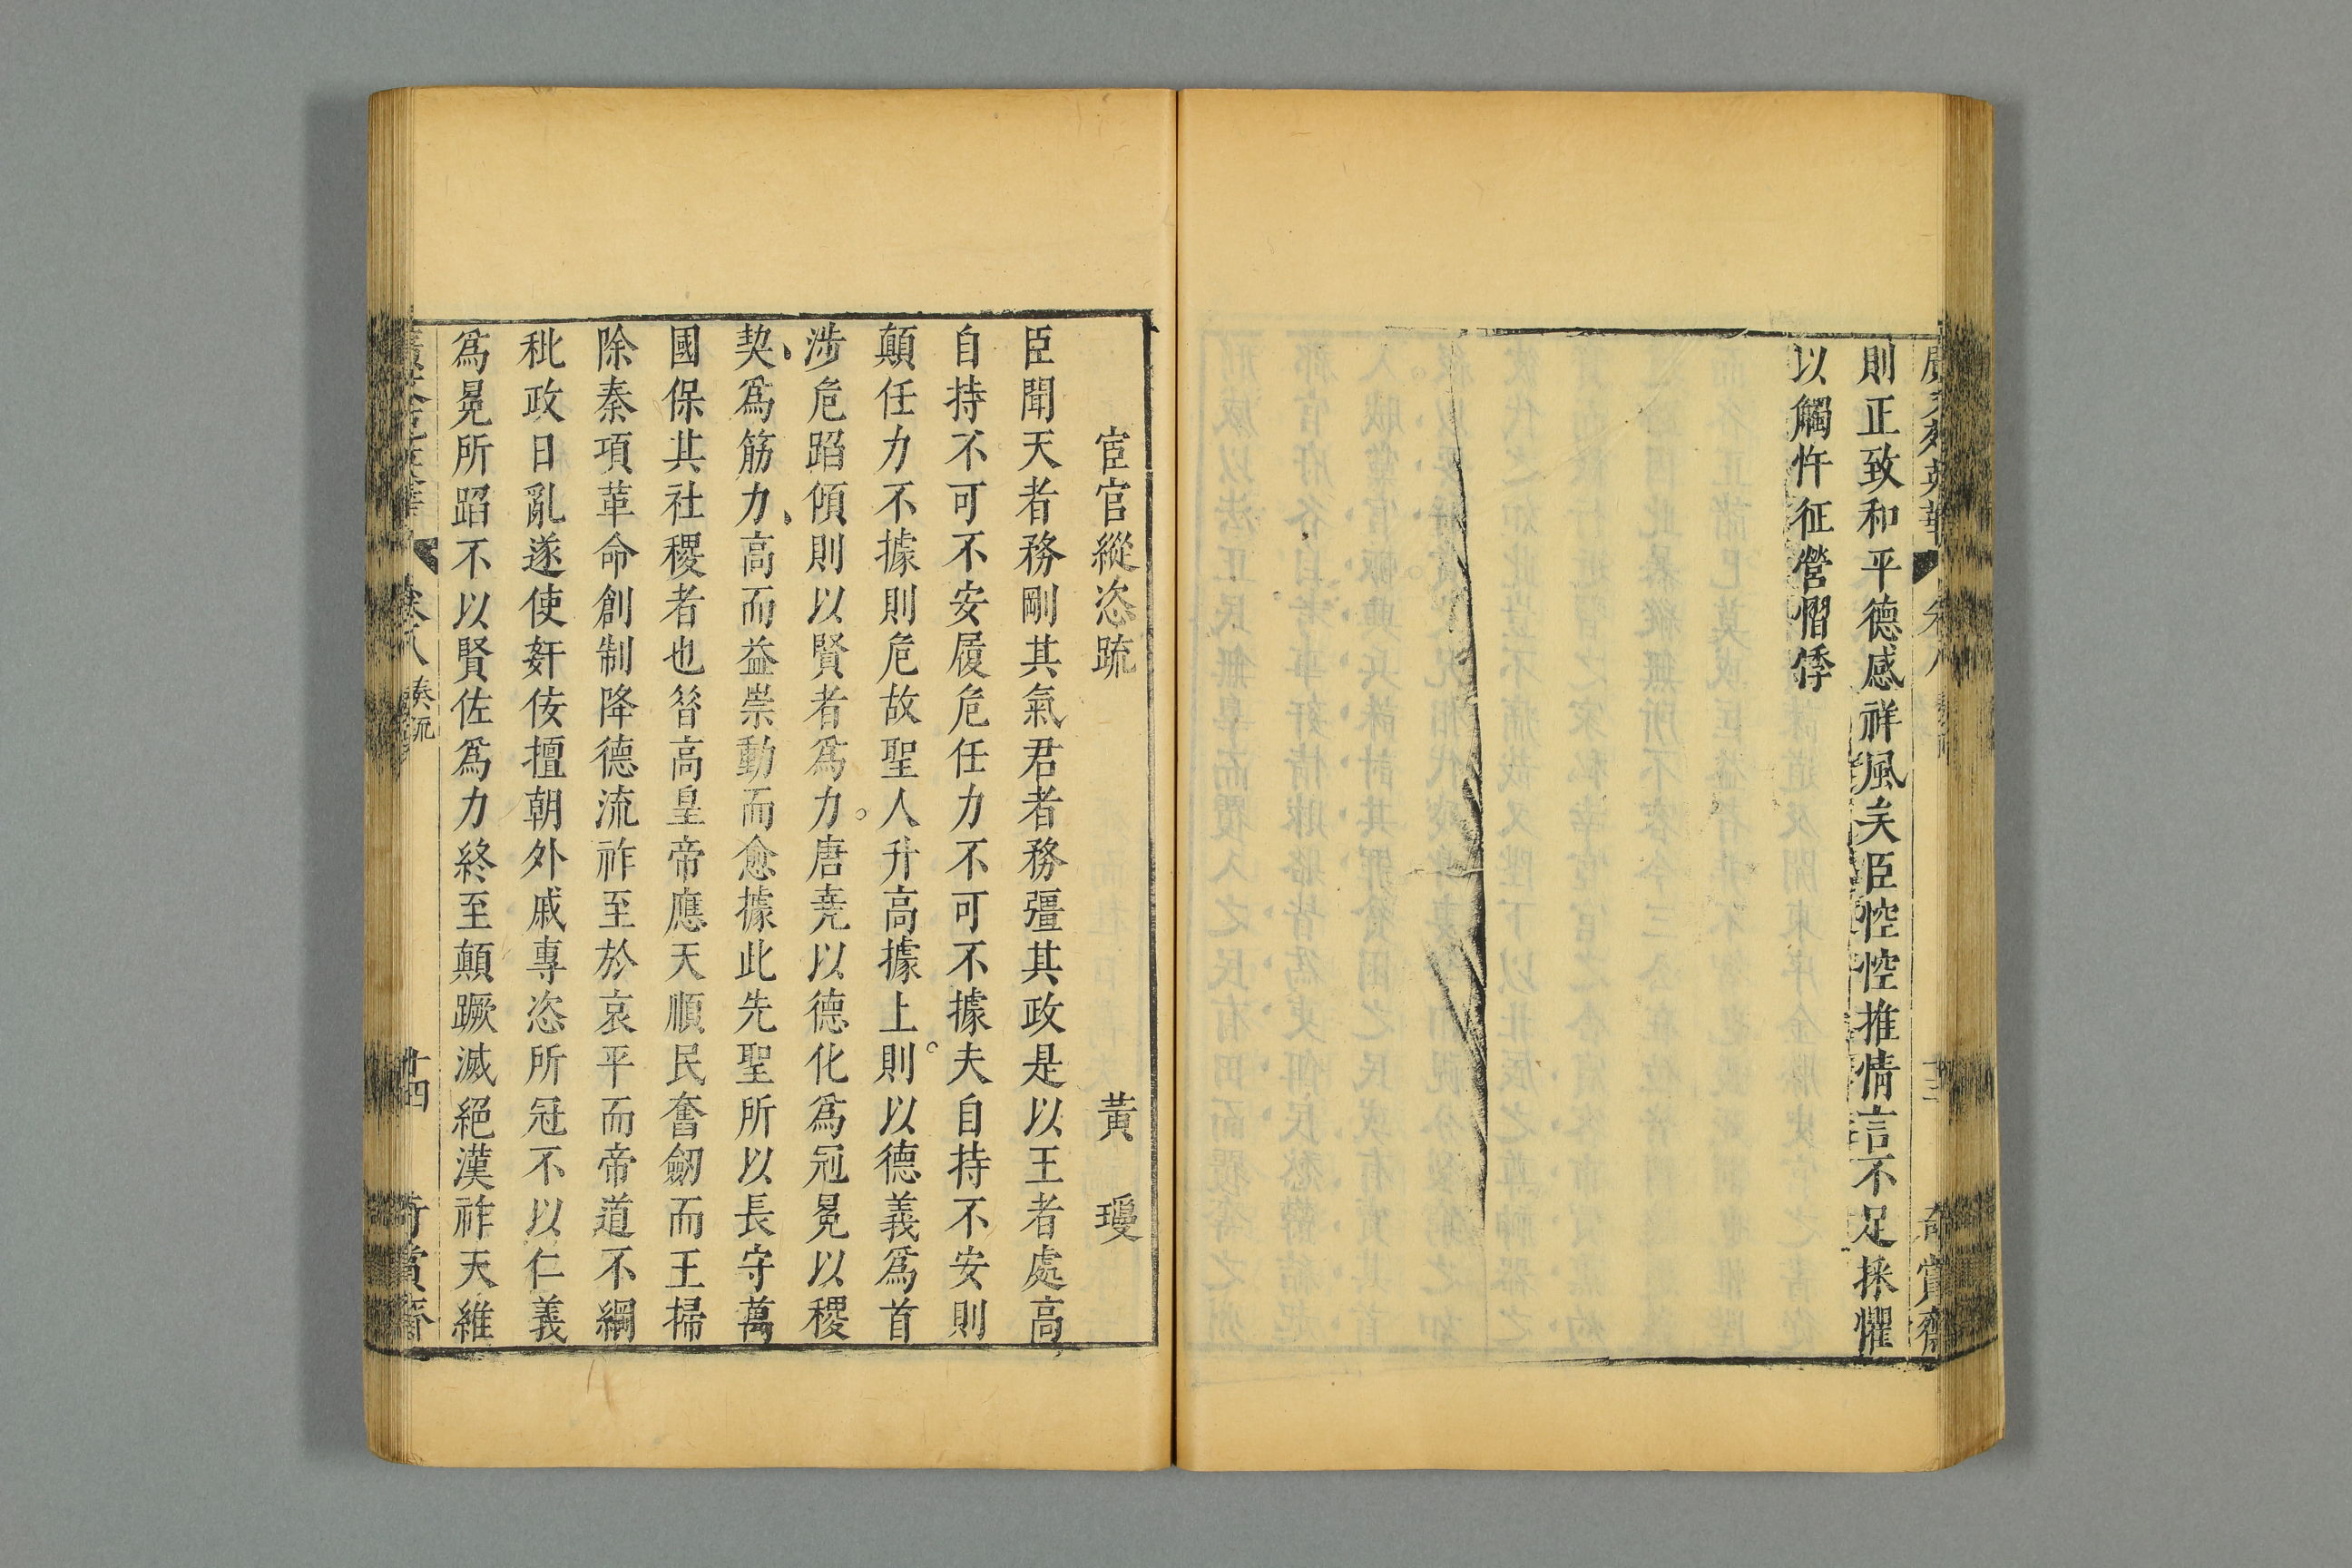 則正致和平德感祥風矣臣悾悾推情言不足採懼
以觸忤征營慴悸
宦官縱恣疏 黃 瓊
臣聞天者務剛其氣君者務彊其政是以王者處高
自持不可不安履危任力不可不據夫自持不安則
顛任力不據則危故聖人升高據上則以德義爲首
涉危蹈傾則以賢者爲力唐堯以德化爲冠冕以稷
契爲筋力高而益崇動而愈據此先聖所以長守萬
國保其社稷者也昝高皇帝應天順民奮劒而王掃
除秦項革命創制降德流祚至於哀平而帝道不綱
秕政日亂遂使奸佞擅朝外戚專恣所冠不以仁義
爲冕所蹈不以賢佐爲力終至顛蹶滅絕漢祚天維
卷八 奏疏 十四 奇賞齋